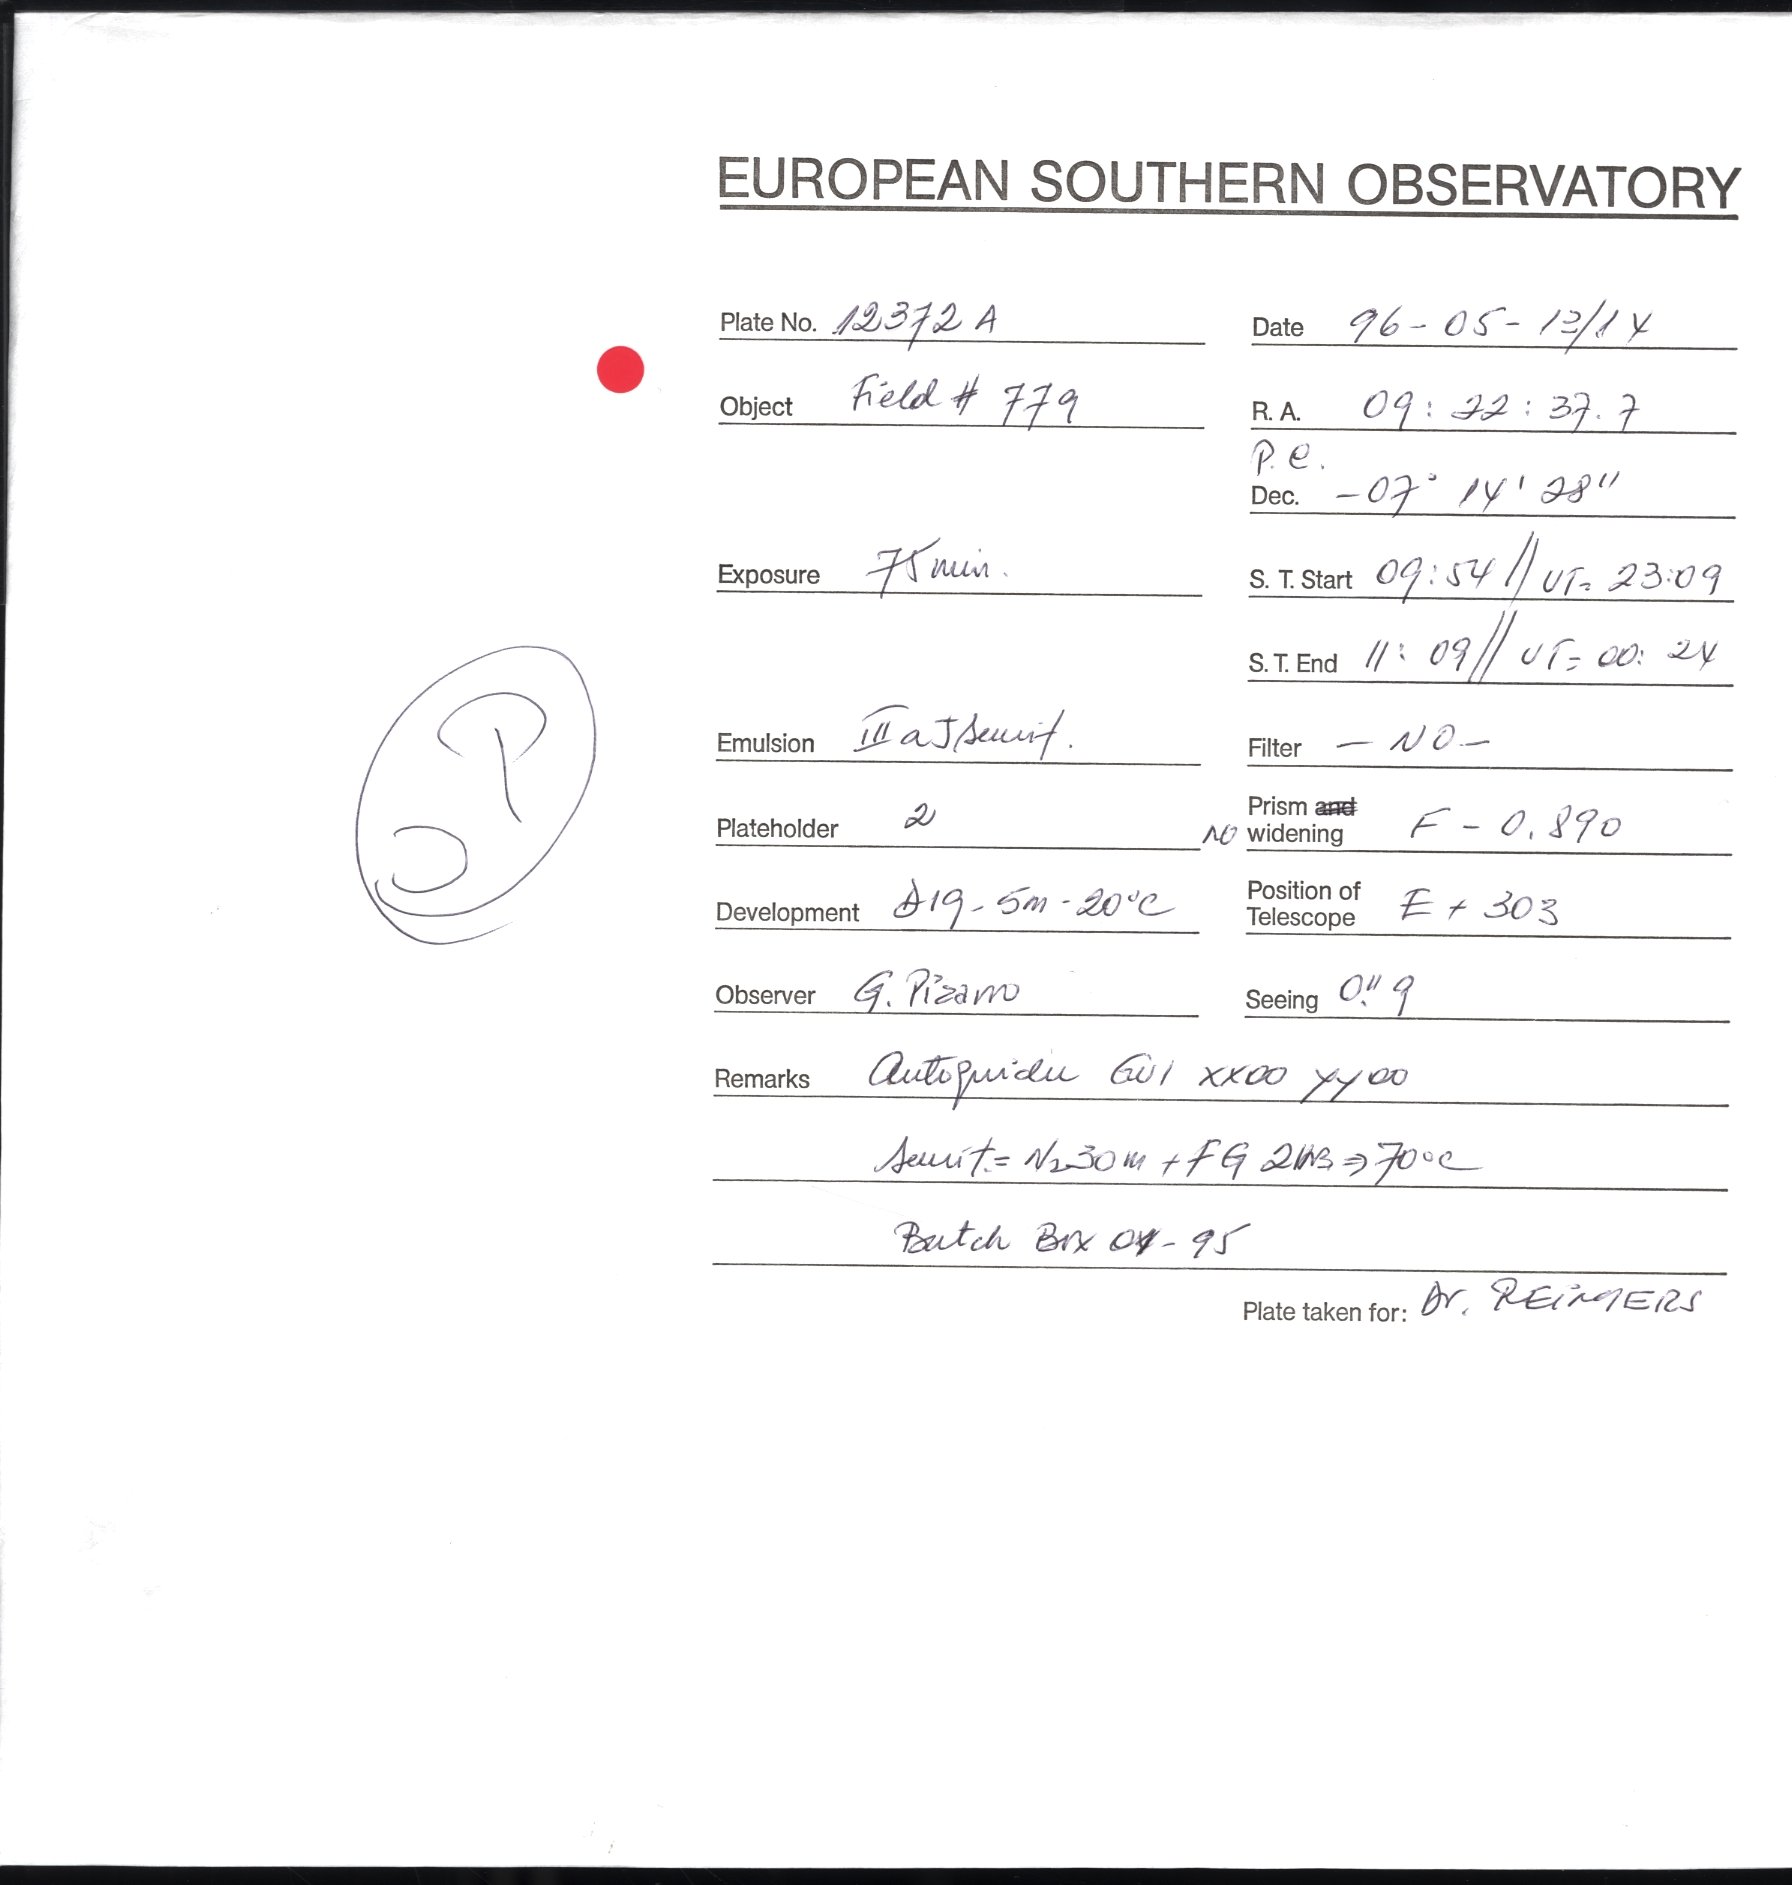 EUROPEAN SOUTHERN OBSERVATORY
Plate No. 12372 A
Date 96-05-13/14
Object Field # 779
R. A. 09:22:37.7
P. e.
Dec. -07° 14' 28"
Exposure 75 min.
S. T. Start 09:54 // UT= 23:09
S. T. End 11:09 // UT= 00:24
Emulsion III a J Sensit.
Filter - NO -
Plateholder 2
NO Prism and widening F - 0.890
Development D19 - 5m - 20°C
Position of Telescope E + 303
Observer G. Pizarro
Seeing 0."9
Remarks Autoguider GU1 XX00 YY00
Sensit.= N2 30m + FG 2hrs ⇒ 70°C
Batch Box 04-95
Plate taken for: Dr. REIMERS